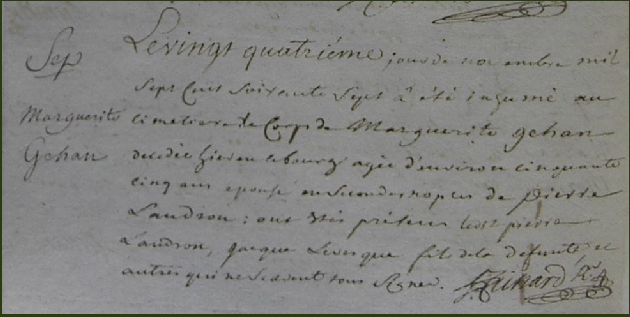 Sep
Marguerite
Gehan
Le vingt quatriéme jour de novembre mil
sept cens soixante sept à été inhumé au
cimetiere le Corps de Marguerite gehan
decedée hier en ce bourg agée d'environ cinquante
cinq ans epouse en secondes nopces de pierre
Landron : ont étés présens ledit pierre
Landron, jacque Levesque fils de la defunte et
autres qui ne scavent tous signer.